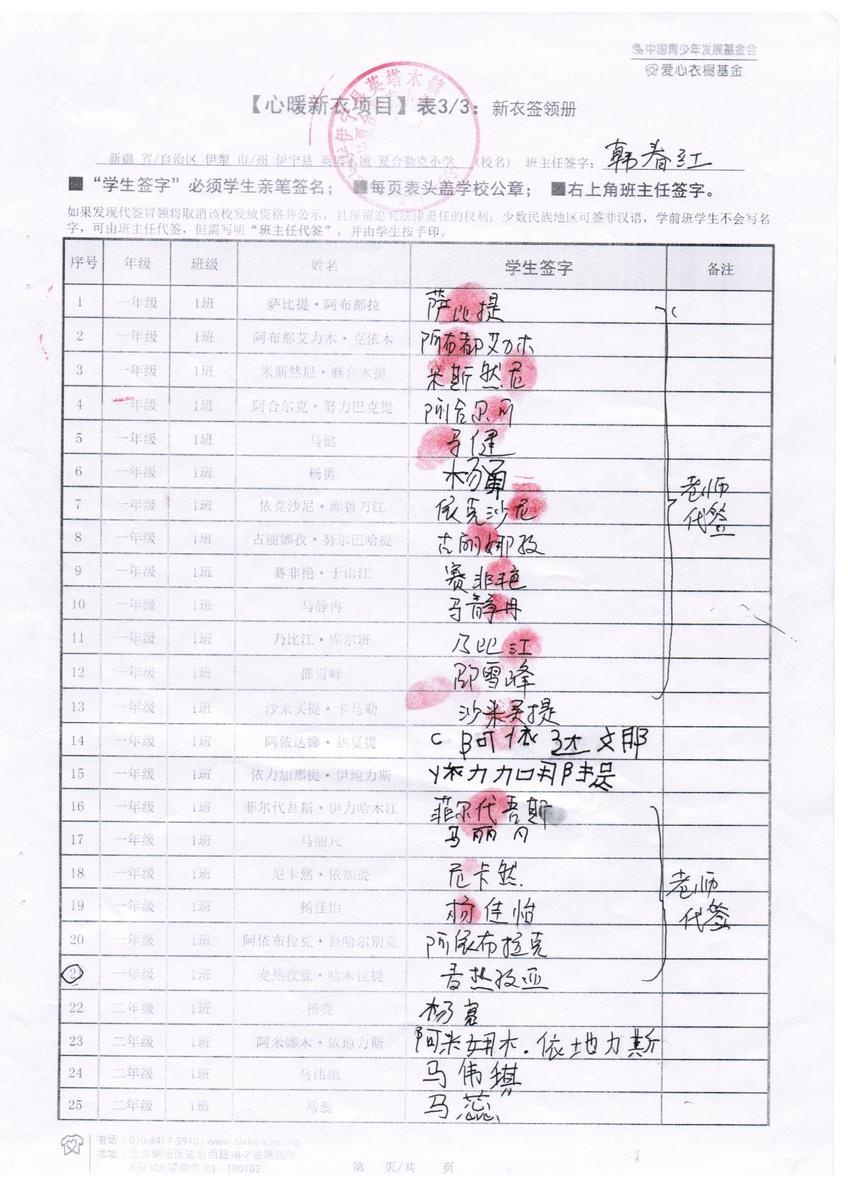 中国青少年发展基金会
爱心衣橱基金
【心暖新衣项目】表3/3：新衣签领册
新疆 省/自治区 伊犁 市/州 伊宁县 英塔木镇 夏合勒克小学 （校名） 班主任签字：韩春红
■“学生签字”必须学生亲笔签名； ■每页表头盖学校公章； ■右上角班主任签字。
如果发现代签冒领将取消该校发放资格并公示，且保留追究法律责任的权利；少数民族地区可签非汉语，学前班学生不会写名
字，可由班主任代签，但需写明“班主任代签”，并由学生按手印。
序号 年级 班级 姓名 学生签字 备注
1 一年级 1班 萨比提·阿布都拉 萨比提
2 一年级 1班 阿布都艾力木·克依木 阿布都艾力木
3 一年级 1班 米斯然尼·麻合木提 米斯然尼
4 一年级 1班 阿合尔克·努力巴克提 阿合尔
5 一年级 1班 马健 马健
6 一年级 1班 杨勇 杨勇
老师
7 一年级 1班 依克沙尼·库鲁万江 依克沙尼
代签
8 一年级 1班 古丽娜孜·努尔巴哈提 古丽娜孜
9 一年级 1班 赛非艳·于山江 赛非艳
10 一年级 1班 马静冉 马静冉
11 一年级 1班 乃比江·库尔班 乃比江
12 一年级 1班 邵雪峰 邵雪峰
13 一年级 1班 沙米买提·卡马勒 沙米买提
14 一年级 1班 阿依达娜·热夏提 阿依达
15 一年级 1班 依力加那提·伊地力斯 依力加那提
16 一年级 1班 菲尔代吾斯·伊力哈木江 菲尔代吾斯
17 一年级 1班 马丽凡 马丽凡
18 一年级 1班 尼卡然·依加提 尼卡然
老师
19 一年级 1班 杨佳怡 杨佳怡
代签
20 一年级 1班 阿依布拉克·吾哈尔别克 阿依布拉克
21 一年级 1班 麦热孜亚·哈木拉提 麦热孜亚
22 二年级 1班 杨亮 杨亮
23 二年级 1班 阿米娜木·依地力斯 阿米娜木·依地力斯
24 二年级 1班 马伟琪 马伟琪
25 二年级 1班 马蕊 马蕊
电话：010-8477-5910 | www.aixinyichu.org
地址：北京朝阳区望京西路48-7 金隅国际
A座103(望京桥北) - 100102
第 页/共 页